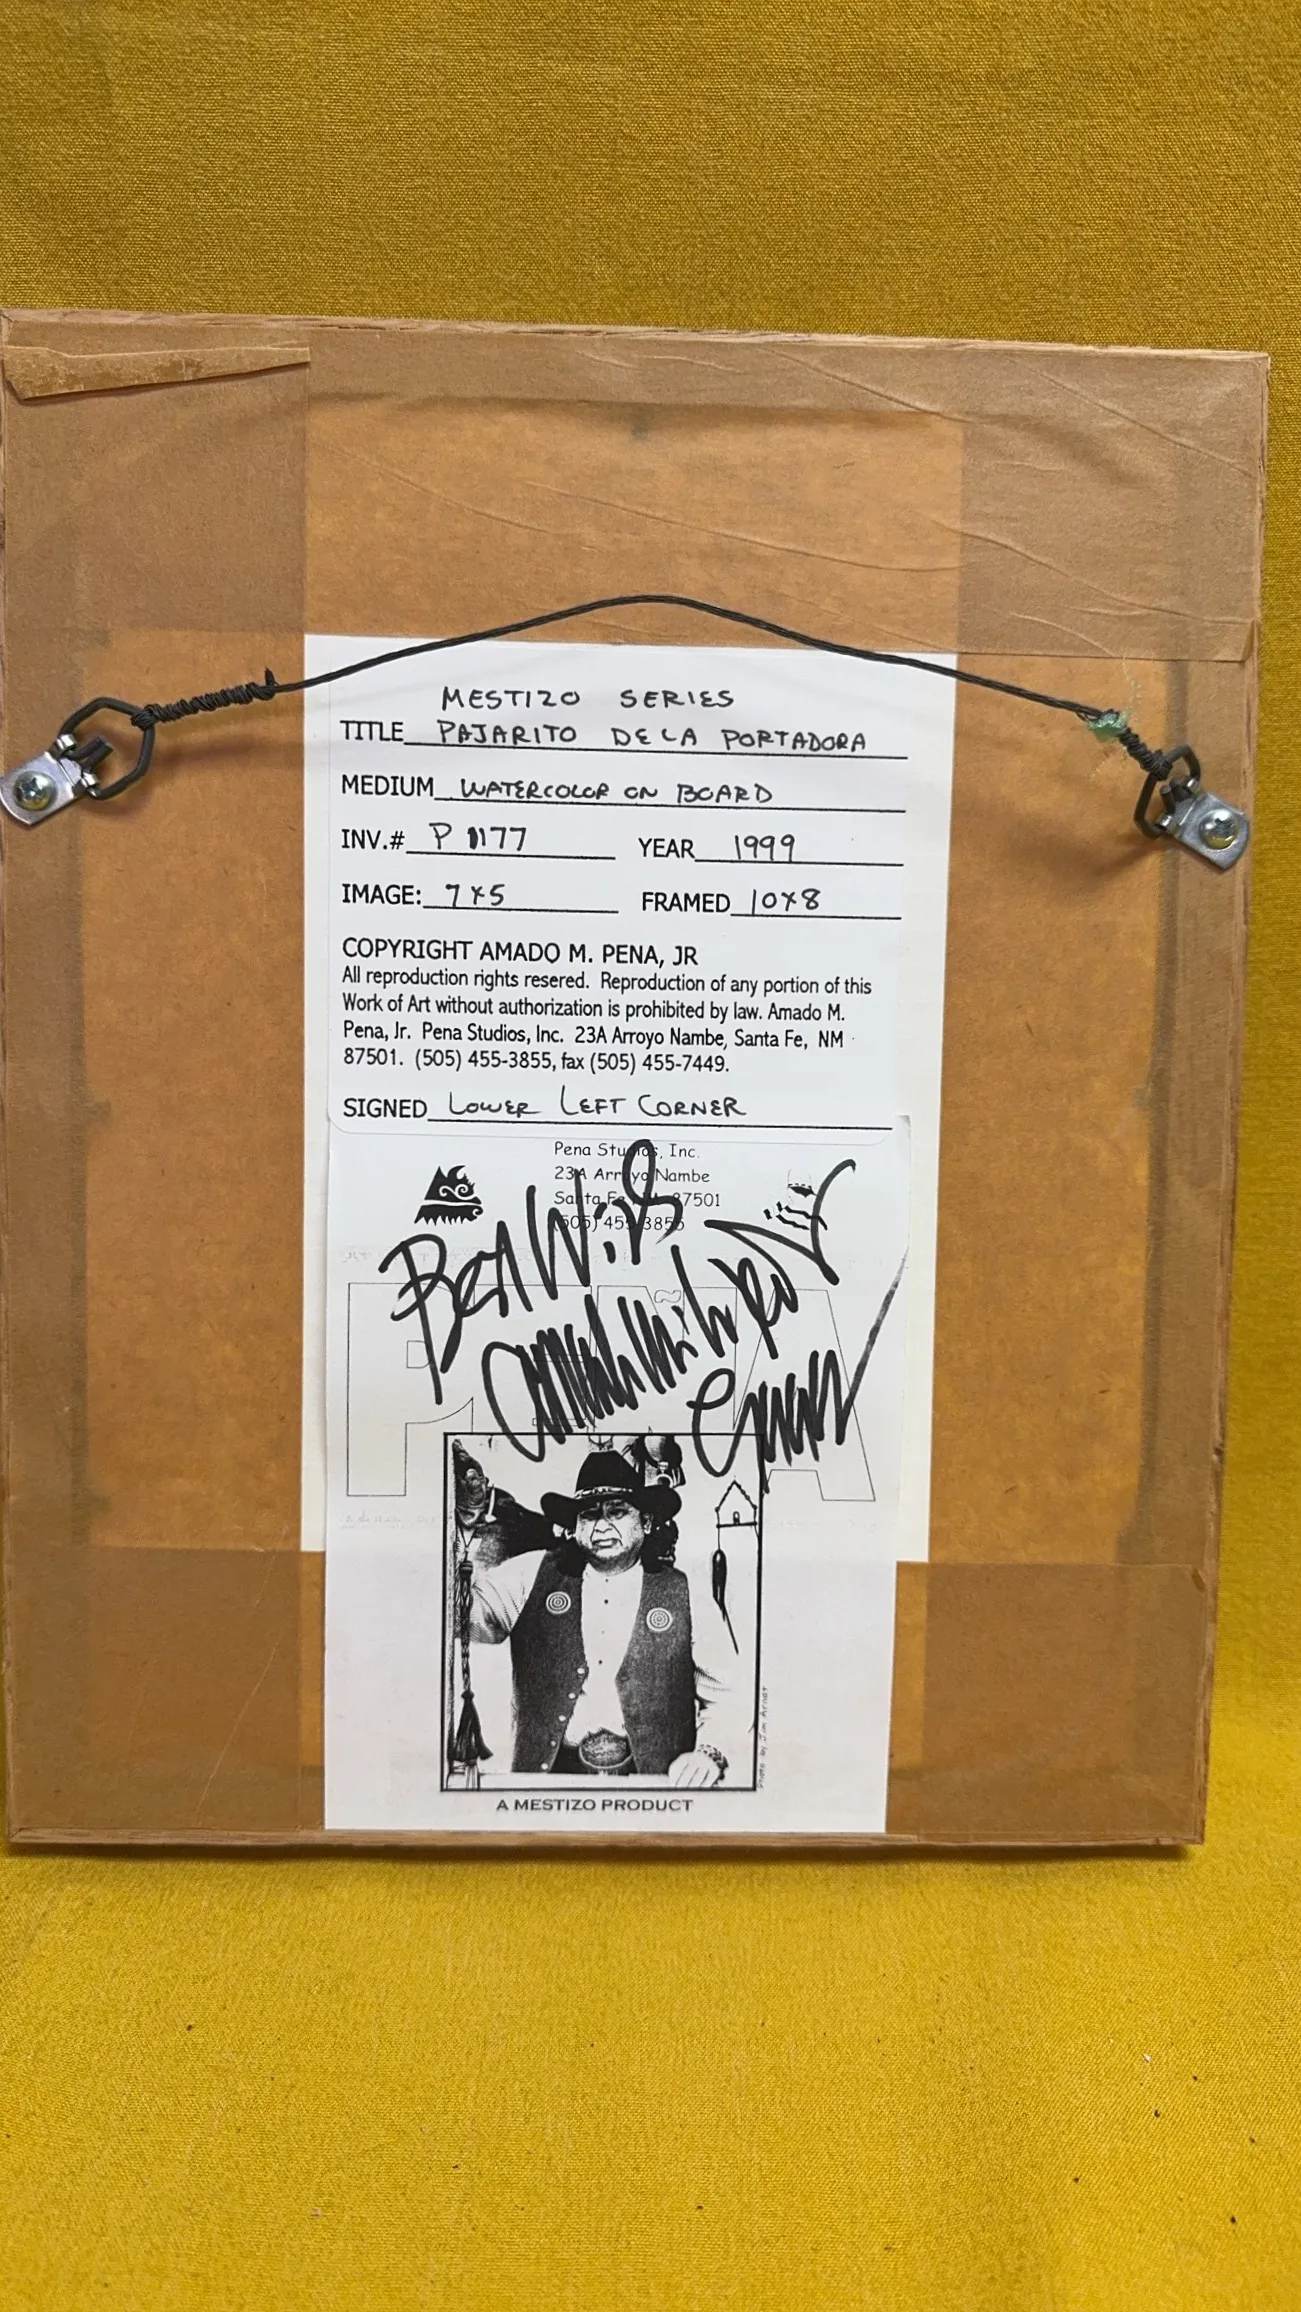 MESTIZO SERIES
TITLE PAJARITO DE LA PORTADORA
MEDIUM WATERCOLOR ON BOARD
INV.# P 1177 YEAR 1999
IMAGE: 7x5 FRAMED 10x8
COPYRIGHT AMADO M. PENA, JR
All reproduction rights resered. Reproduction of any portion of this
Work of Art without authorization is prohibited by law. Amado M.
Pena, Jr. Pena Studios, Inc. 23A Arroyo Nambe, Santa Fe, NM
87501. (505) 455-3855, fax (505) 455-7449.
SIGNED LOWER LEFT CORNER
Pena Studios, Inc.
23A Arroyo Nambe
Santa Fe 87501
(505) 455-3855
Best Wish
PEÑA
Photo by Jim Arndt
A MESTIZO PRODUCT